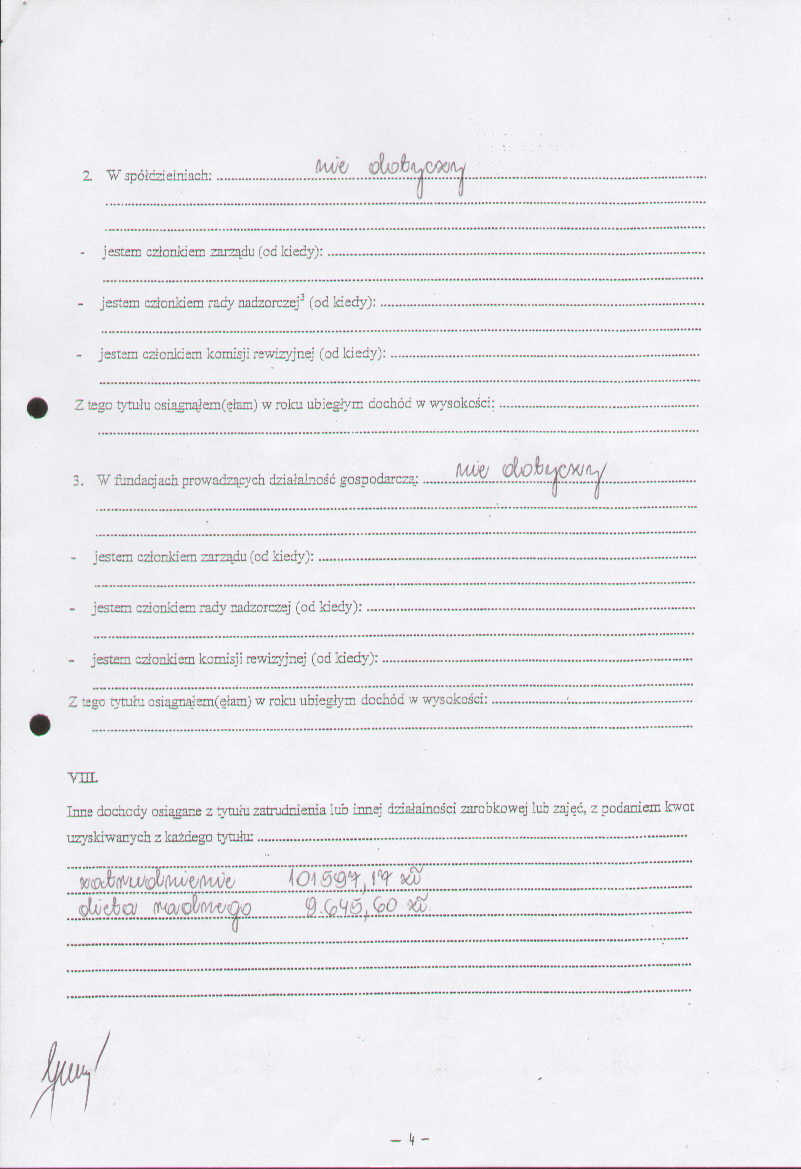 2. W spółdzielniach: nie dotyczy
- jestem członkiem zarządu (od kiedy):
- jestem członkiem rady nadzorczej³ (od kiedy):
- jestem członkiem komisji rewizyjnej (od kiedy):
Z tego tytułu osiągnąłem(ęłam) w roku ubiegłym dochód w wysokości:
3. W fundacjach prowadzących działalność gospodarczą: nie dotyczy
- jestem członkiem zarządu (od kiedy):
- jestem członkiem rady nadzorczej (od kiedy):
- jestem członkiem komisji rewizyjnej (od kiedy):
Z tego tytułu osiągnąłem(ęłam) w roku ubiegłym dochód w wysokości:
VIII.
Inne dochody osiągane z tytułu zatrudnienia lub innej działalności zarobkowej lub zajęć, z podaniem kwot
uzyskiwanych z każdego tytułu:
zatrudnienie 101597,17 zł
dieta radnego 9.645,60 zł
- 4 -